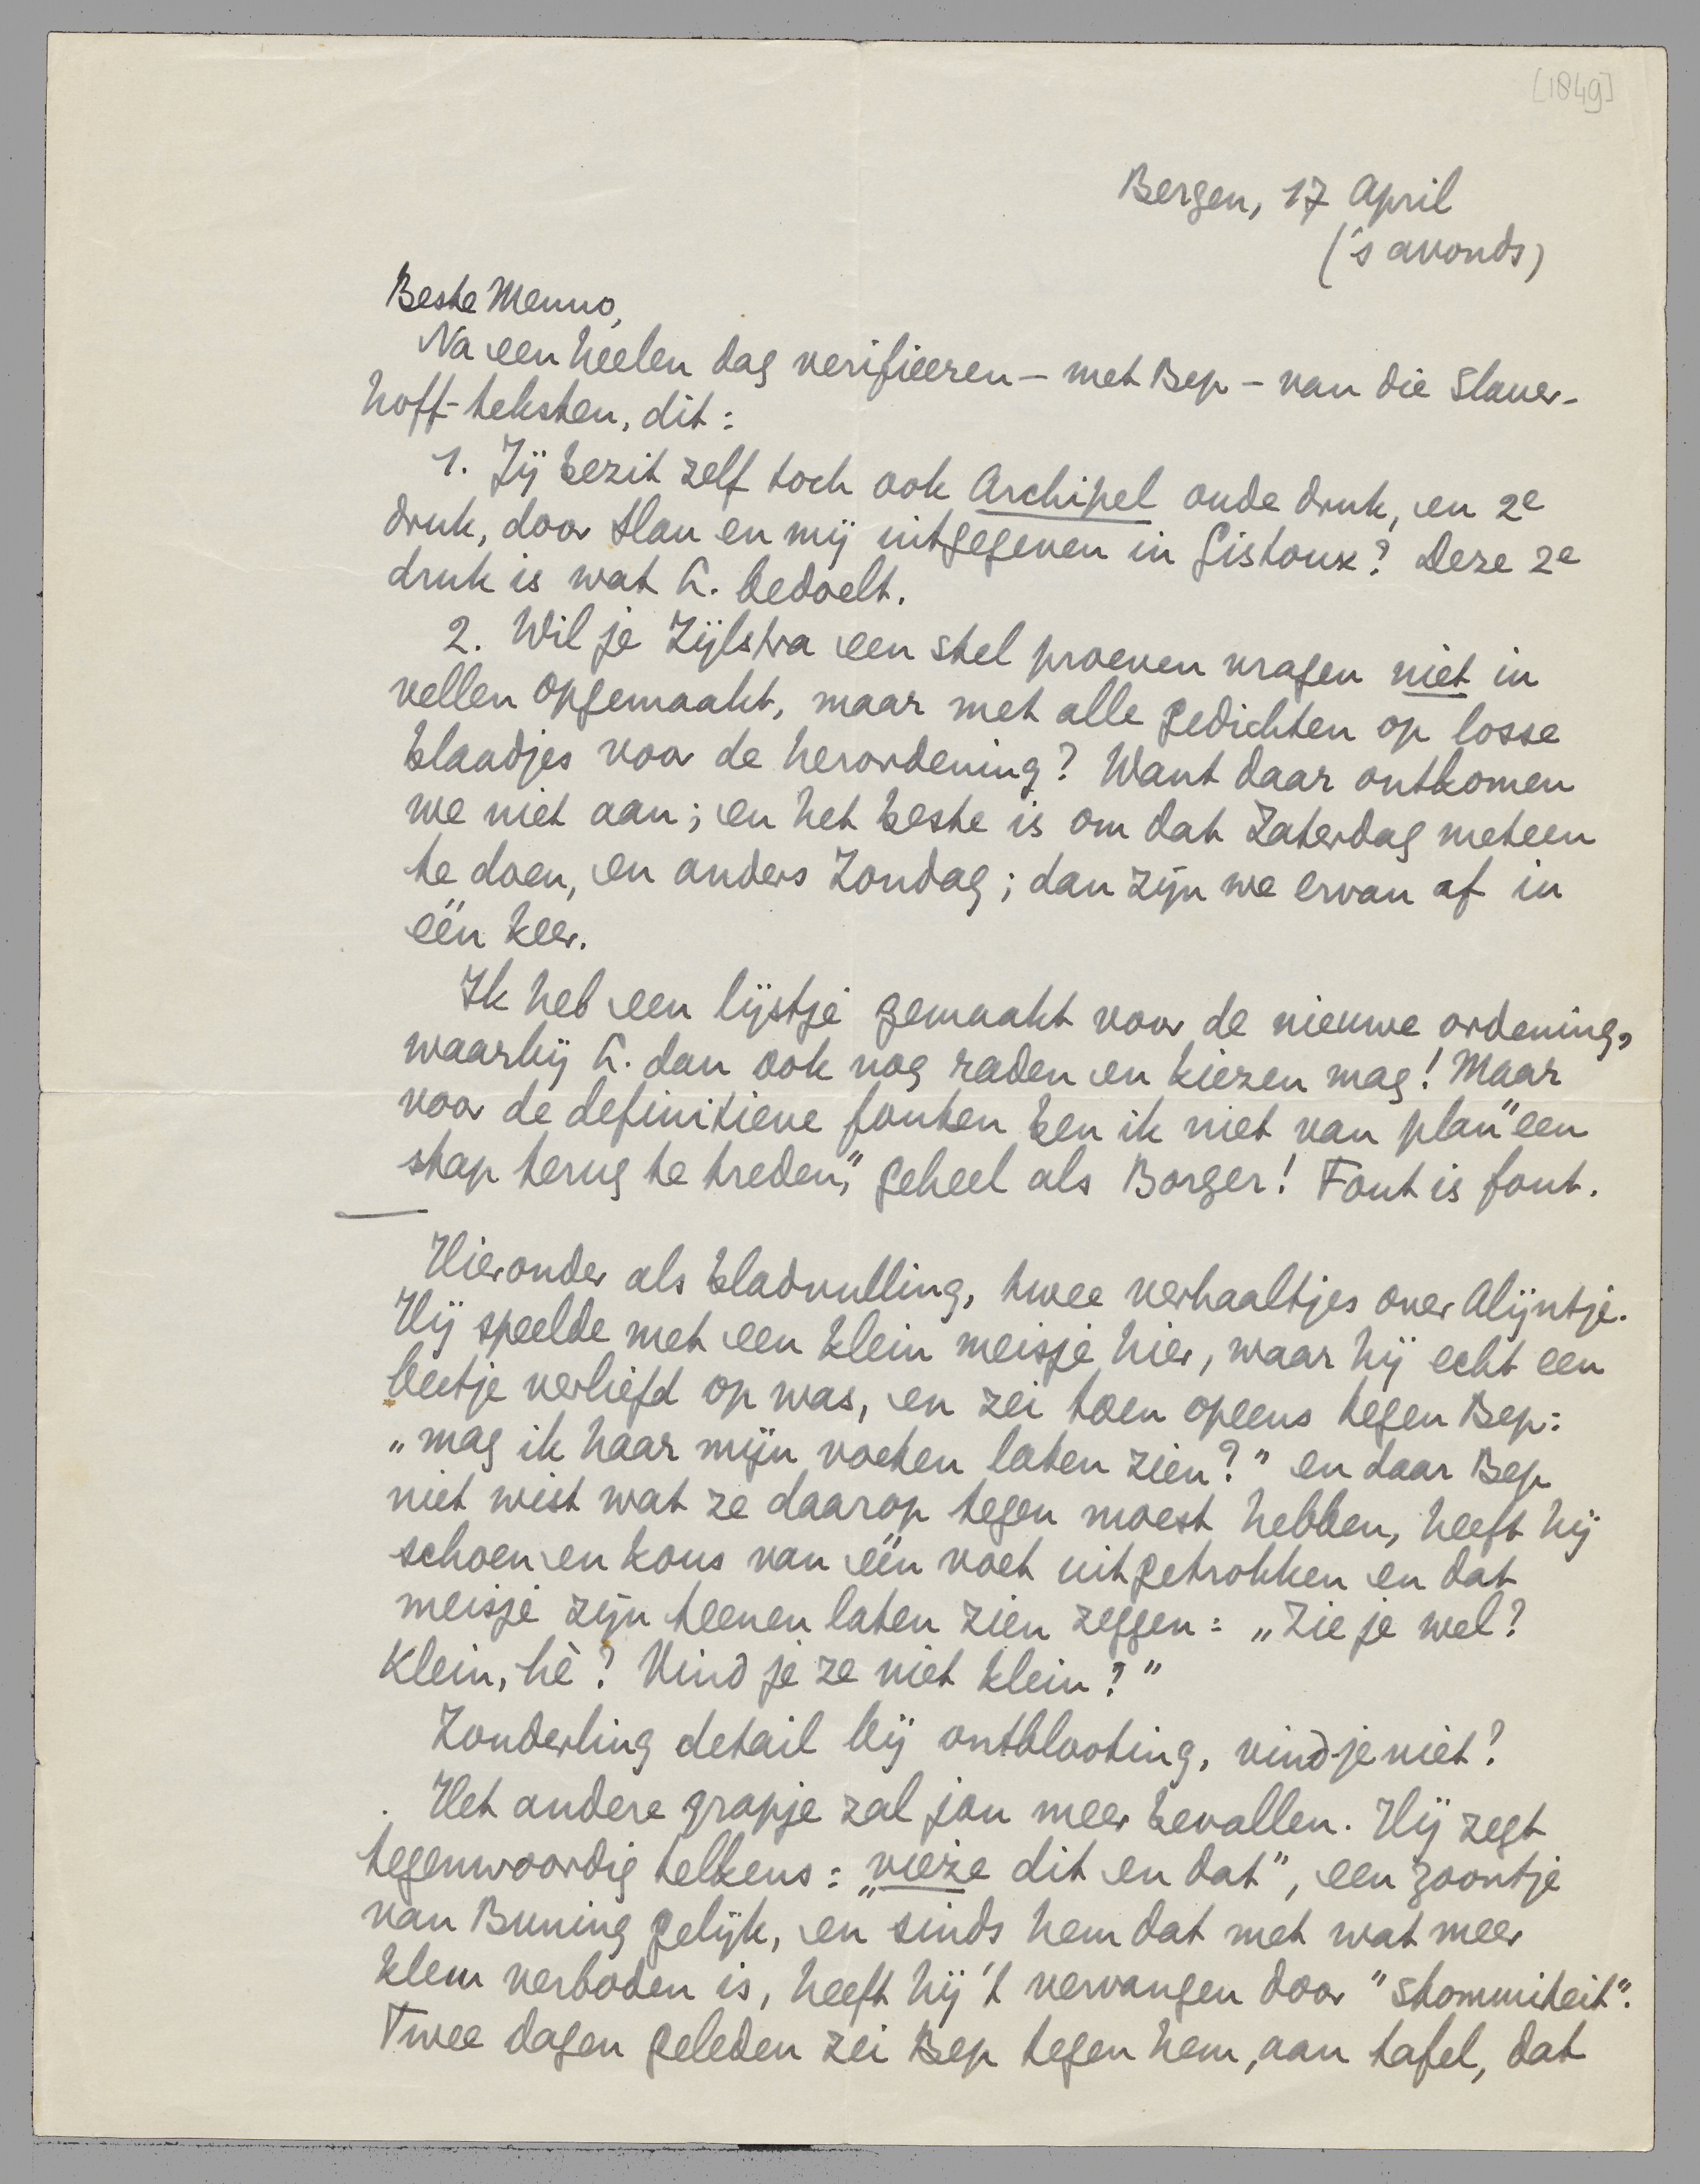 [1849]
Bergen, 17 April
('s avonds)
Beste Menno,
Na een heelen dag verifieeren – met Bep – van die Slauer-
hoff-teksten, dit:
1. Jij bezit zelf toch ook Archipel oude druk, en 2e
druk, door Slau en mij uitgegeven in Gistoux? Deze 2e
druk is wat L. bedoelt.
2. Wil je Zijlstra een stel proeven vragen niet in
vellen opgemaakt, maar met alle gedichten op losse
blaadjes voor de herordening? Want daar ontkomen
we niet aan; en het beste is om dat Zaterdag meteen
te doen, en anders Zondag; dan zijn we ervan af in
één keer.
Ik heb een lijstje gemaakt voor de nieuwe ordening,
waarbij L. dan ook nog raden en kiezen mag! Maar
voor de definitieve fouten ben ik niet van plan "een
stap terug te treden", geheel als Borger! Fout is fout.
Hieronder als bladvulling, twee verhaaltjes over Alijntje.
Hij speelde met een klein meisje hier, waar hij echt een
beetje verliefd op was, en zei toen opeens tegen Bep:
„mag ik haar mijn voeten laten zien?" en daar Bep
niet wist wat ze daarop tegen moest hebben, heeft hij
schoen en kous van één voet uitgetrokken en dat
meisje zijn teenen laten zien zeggen: „Zie je wel?
Klein, hè? Vind je ze niet klein?"
Zonderling detail bij ontblooting, vind-je niet?
Het andere grapje zal jou meer bevallen. Hij zegt
tegenwoordig telkens: „vieze dit en dat", een zoontje
van Buning gelijk, en sinds hem dat met wat meer
klem verboden is, heeft hij 't vervangen door "stommiteit".
Twee dagen geleden zei Bep tegen hem, aan tafel, dat